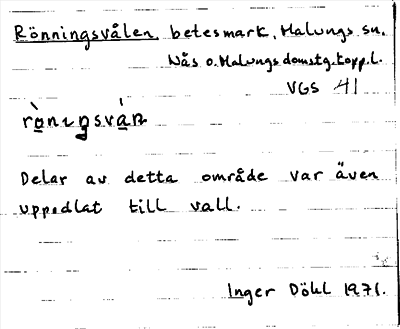 Rönningsvålen, betesmark, Malungs sn.
Nås o. Malungs domstg. topp.l.
VGS 41
Delar av detta område var även
uppodlat till vall.
Inger Döhl 1971.